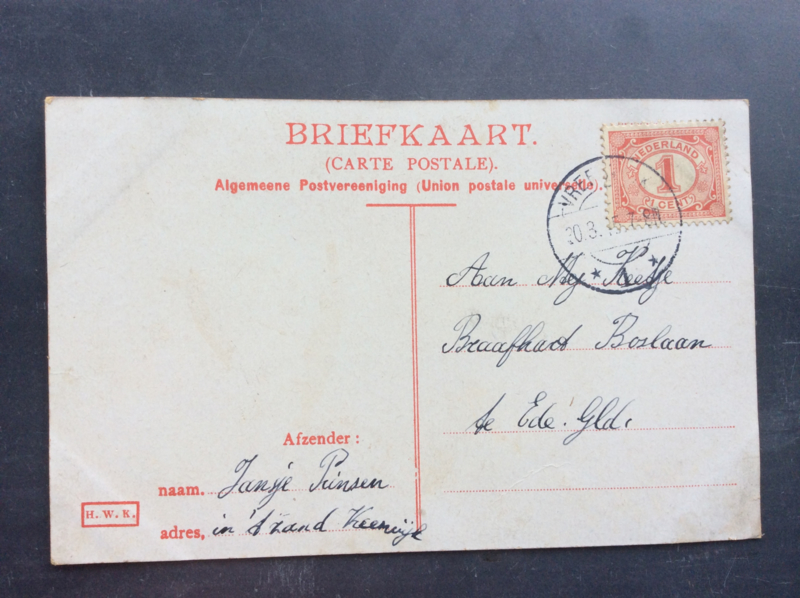 BRIEFKAART.
(CARTE POSTALE).
Algemeene Postvereeniging (Union postale universelle).
NEDERLAND
1
1 CENT
20.3.
Aan Mej Keetje
Braafhart Boslaan
te Ede. Gld.
Afzender:
naam. Jansje Prinsen
H. W. K.
adres, in 't zand